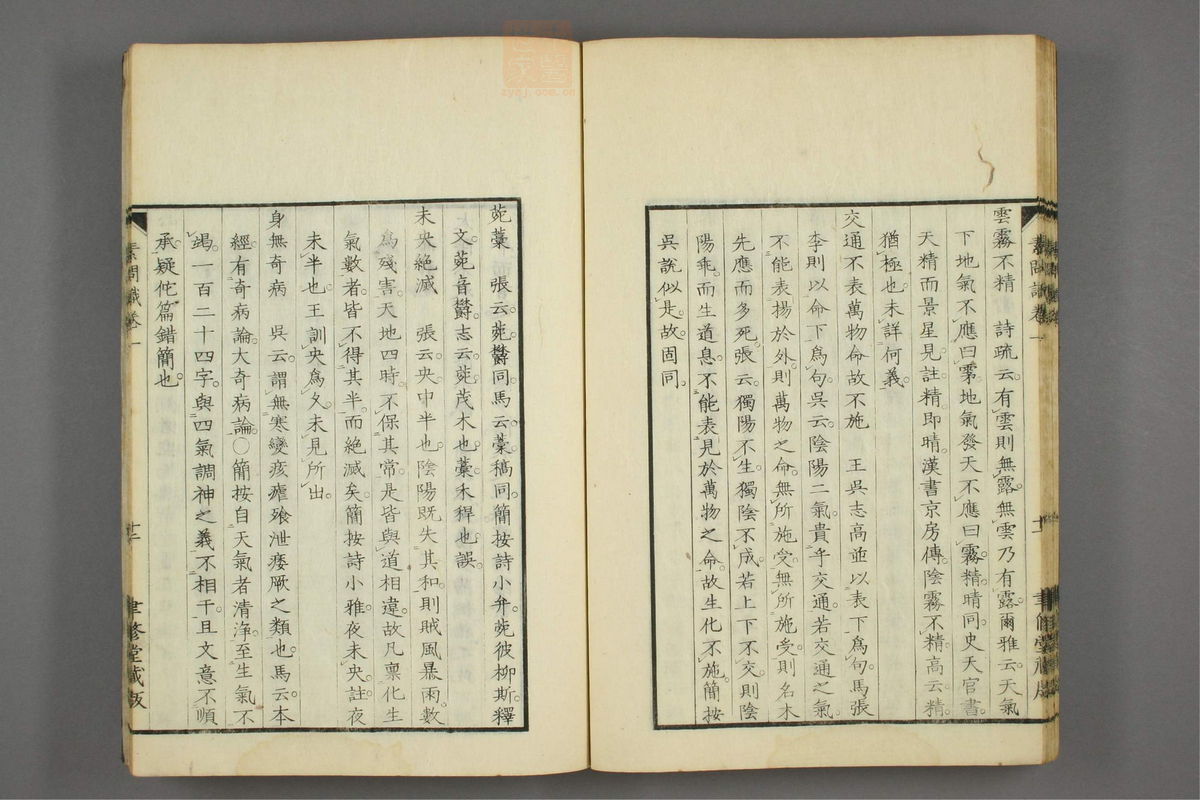 雲霧不精　詩疏云。有雲則無露。無雲乃有露。爾雅云。天氣
下地氣不應曰雺。地氣發天不應曰霧。精晴同。史天官書。
天精而景星見。註精即晴。漢書京房傳。陰霧不精。高云。精
猶極也。未詳何義。
交通不表萬物命故不施　王吳志高並以表下爲句。馬張
李則以命下爲句。吳云。陰陽二氣。貴乎交通。若交通之氣。
不能表揚於外。則萬物之命。無所施受。無所施受。則名木
先應而多死。張云。獨陽不生。獨陰不成。若上下不交。則陰
陽乖。而生道息。不能表見於萬物之命。故生化不施。簡按
吳說似是。故固同。
素問識卷一
菀藁　張云。菀鬱同。馬云。藁稿同。簡按詩小弁。菀彼柳斯。釋
文。菀音鬱。志云。菀茂木也。藁禾稈也。誤。
未央絕滅　張云。央中半也。陰陽既失其和。則賊風暴雨。數
爲殘害。天地四時。不保其常。是皆與道相違。故凡稟化生
氣數者。皆不得其半。而絕滅矣。簡按詩小雅。夜未央。註夜
未半也。王訓央爲久。未見所出。
身無奇病　吳云。謂無寒變痎瘧飱泄痿厥之類也。馬云。本
經有奇病論。大奇病論。○簡按自天氣者清淨。至生氣不
竭。一百二十四字。與四氣調神之義不相干。且文意不順
承。疑佗篇錯簡也。
素問識卷一
聿修堂藏版